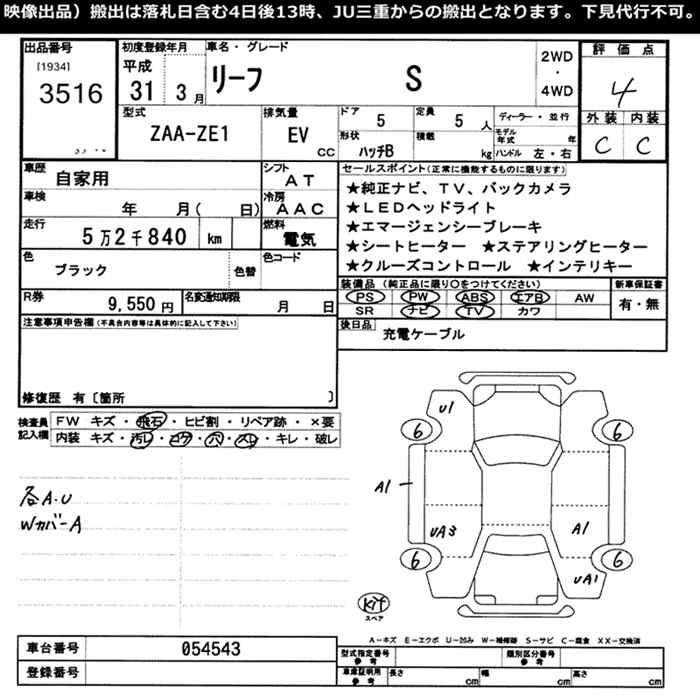 映像出品）搬出は落札日含む4日後13時、JU三重からの搬出となります。下見代行不可。
出品番号
[1934]
3516
初度登録年月
平成
31 3月
車名・グレード
リーフ S
2WD
・
4WD
評価点
4
外装 内装
C C
型式
ZAA-ZE1
排気量
EV
cc
ドア 5
定員 5 人
ディーラー・並行
形状 ハッチB
積載 kg
モデル年式 年
ハンドル 左・右
車歴 自家用
シフト AT
車検 年 月( 日)
冷房 AAC
走行 5万2千840 km
燃料 電気
色 ブラック 色替
色コード
R券 9,550円
名変通知期限 月 日
注意事項申告欄(不具合内容等は具体的に記入して下さい)
修復歴 有〔箇所 〕
セールスポイント(正常に機能するものに限ります)
★純正ナビ、TV、バックカメラ
★LEDヘッドライト
★エマージェンシーブレーキ
★シートヒーター ★ステアリングヒーター
★クルーズコントロール ★インテリキー
装備品(純正品に限り○をつけてください)
PS PW ABS エアB AW
SR ナビ TV カワ
新車保証書
有・無
後日品 充電ケーブル
検査員記入欄
FW キズ・飛石・ヒビ割・リペア跡・×要
内装 キズ・汚レ・コゲ・穴・スレ・キレ・破レ
各A.U
WカバーA
U1
6 6
A1
UA3 A1
6 6
UA1
kit
スペア
A-キズ E-エクボ U-凹み W-補修跡 S-サビ C-腐食 XX-交換済
車台番号 054543
登録番号
型式指定番号 参考
類別区分番号 参考
車庫証明用 参考
長さ cm 幅 cm 高さ cm